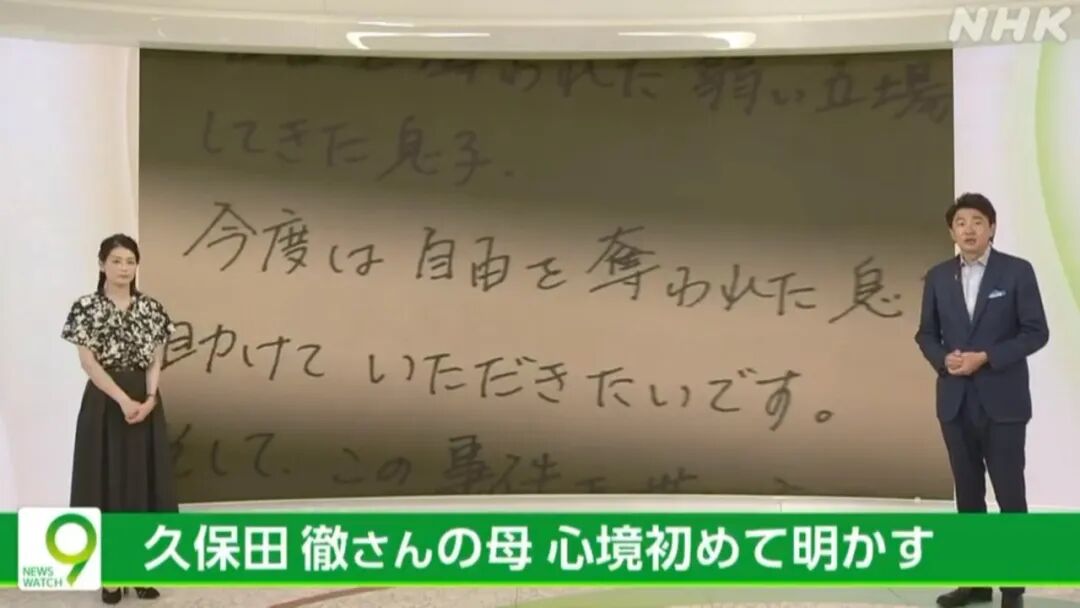 NHK
われた 弱い立場
してきた息子.
今度は 自由を 奪われた 息
助けて いただきたいです。
して、この事件
9
NEWS
WATCH
久保田 徹さんの母 心境初めて明かす